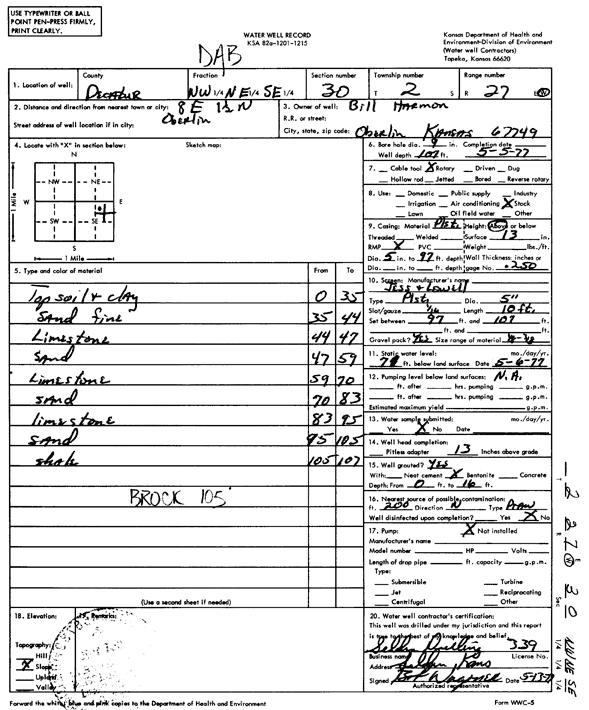 USE TYPEWRITER OR BALL
POINT PEN-PRESS FIRMLY,
PRINT CLEARLY.
WATER WELL RECORD
KSA 82a-1201-1215
Kansas Department of Health and
Environment-Division of Environment
(Water well Contractors)
Topeka, Kansas 66620
DAB
1. Location of well: County Decatur Fraction NW 1/4 NE 1/4 SE 1/4 Section number 30 Township number T 2 S Range number R 27 E W
2. Distance and direction from nearest town or city: 8 E 1½ N
Oberlin
Street address of well location if in city:
3. Owner of well: Bill Harmon
R.R. or street:
City, state, zip code: Oberlin Kansas 67749
4. Locate with "X" in section below: Sketch map:
N
NW NE
W E
SW SE
S
1 Mile
1 Mile
6. Bore hole dia. 9 in. Completion date
Well depth 107 ft. 5-5-77
7. Cable tool X Rotary Driven Dug
Hollow rod Jetted Bored Reverse rotary
8. Use: Domestic Public supply Industry
Irrigation Air conditioning X Stock
Lawn Oil field water Other
9. Casing: Material Plst. Height: Above or below
Threaded Welded Surface 13 in.
RMP X PVC Weight lbs./ft.
Dia. 5 in. to 97 ft. depth Wall Thickness: inches or
Dia. in. to ft. depth gage No. .250
10. Screen: Manufacturer's name
Jess & Lowell
Type Plst Dia. 5"
Slot/gauze 1/16 Length 10 ft.
Set between 97 ft. and 107 ft.
ft. and ft.
Gravel pack? Yes Size range of material
11. Static water level: mo./day/yr.
ft. below land surface Date 5-6-77
12. Pumping level below land surface: N.A.
ft. after hrs. pumping g.p.m.
ft. after hrs. pumping g.p.m.
Estimated maximum yield g.p.m.
13. Water sample submitted: mo./day/yr.
Yes X No Date
14. Well head completion:
Pitless adapter 13 Inches above grade
15. Well grouted? Yes
With: Neat cement X Bentonite Concrete
Depth: From 0 ft. to 16 ft.
16. Nearest source of possible contamination:
ft. 200 Direction N Type Draw
Well disinfected upon completion? Yes X No
17. Pump: X Not installed
Manufacturer's name
Model number HP Volts
Length of drop pipe ft. capacity g.p.m.
Type:
Submersible Turbine
Jet Reciprocating
Centrifugal Other
5. Type and color of material From To
Top soil & clay 0 35
Sand fine 35 44
Limestone 44 47
Sand 47 59
Limestone 59 70
Sand 70 83
limestone 83 95
Sand 95 105
shale 105 107
BROCK 105'
(Use a second sheet if needed)
18. Elevation: 19. Remarks:
Topography:
Hill
X Slope
Upland
Valley
20. Water well contractor's certification:
This well was drilled under my jurisdiction and this report
is true to the best of my knowledge and belief.
Selden Drilling 339
Business name License No.
Address Selden Kans
Signed Date 5-13-77
Authorized representative
Forward the white, blue and pink copies to the Department of Health and Environment
Form WWC-5
T 2 R 27 E W Sec 30 1/4 1/4 1/4 NW NE SE